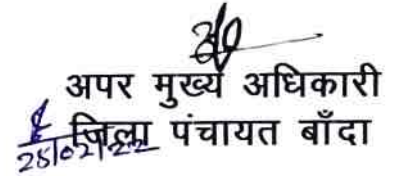 अपर मुख्य अधिकारी
जिला पंचायत बाँदा
25/02/22